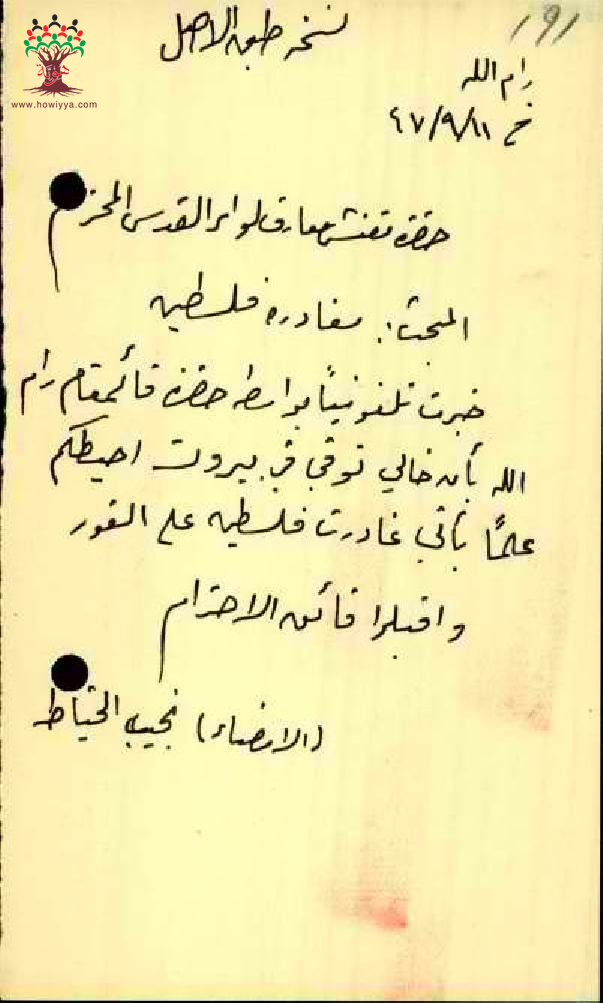 ١٩١
نسخة طبق الاصل
www.howiyya.com
رام الله
في ٤٧/٩/١١
حضرة مفتش معارف لواء القدس المحترم
المبحث: مغادرة فلسطين
خبرت تلفونياً بواسطة حضرة قائمقام رام
الله بأن خالي توفي في بيروت احيطكم
علماً بأني غادرت فلسطين على الفور
واقبلوا فائق الاحترام
(الامضاء) نجيب الخياط